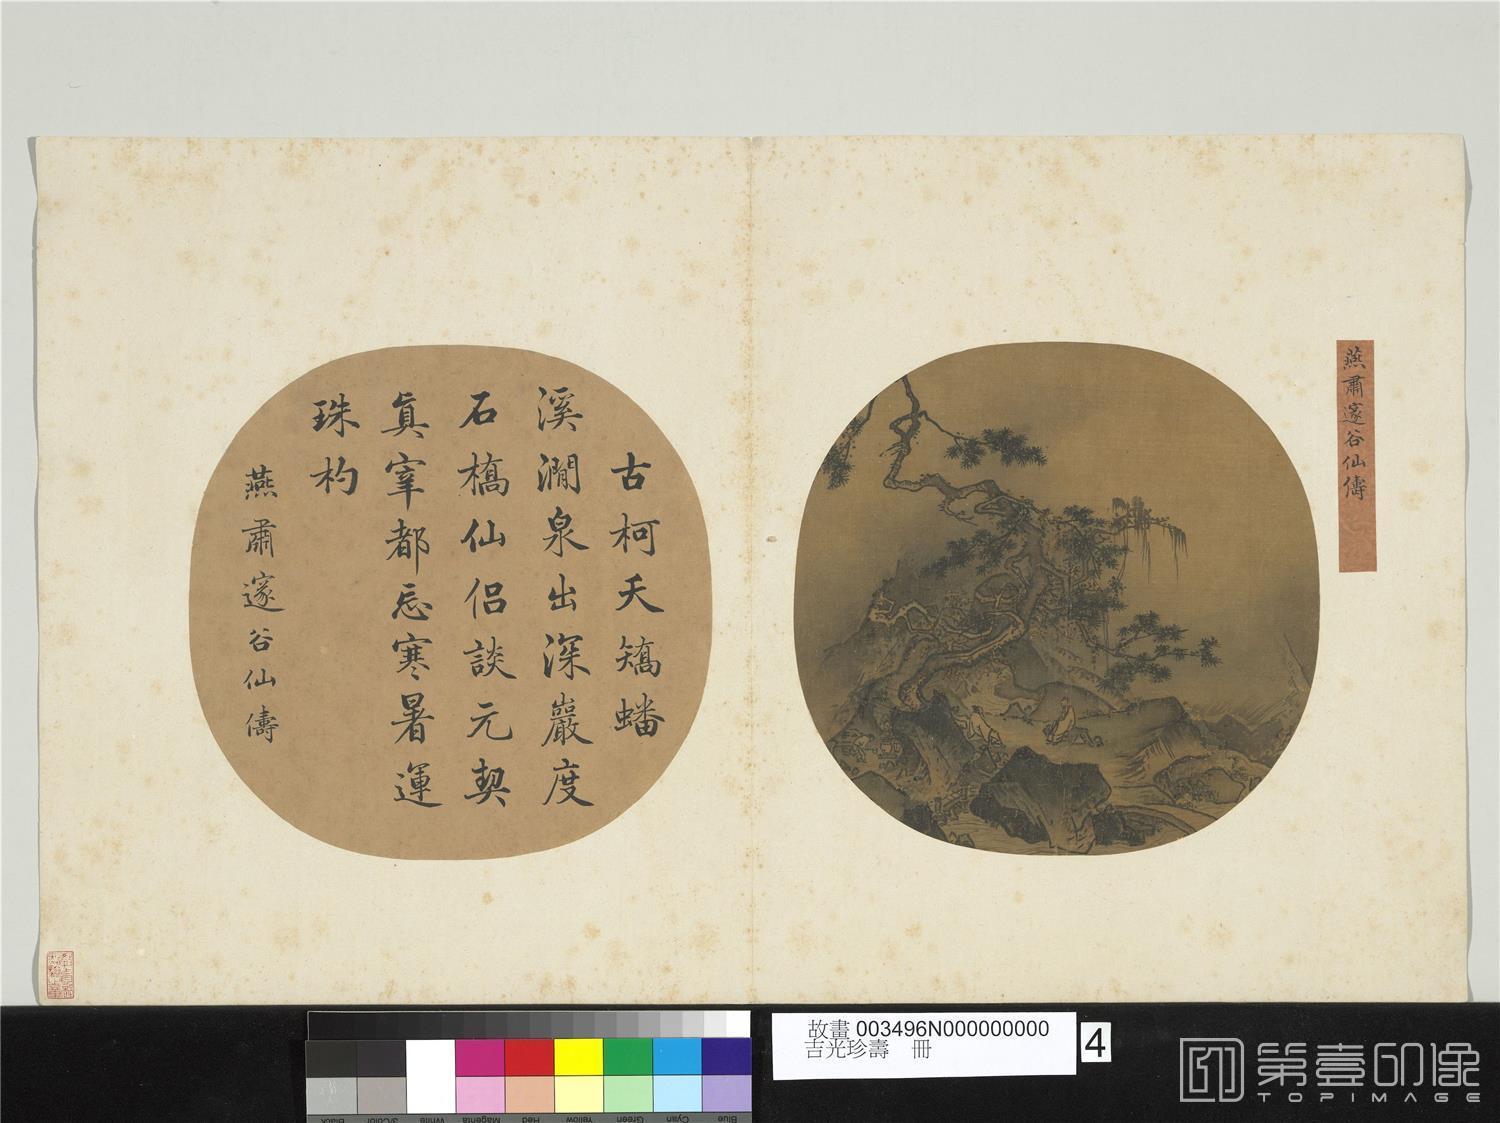 燕肅邃谷仙儔
古柯夭矯蟠
溪澗泉出深巖度
石橋仙侶談元契
真宰都忘寒暑運
珠杓
燕肅邃谷仙儔
故畫 003496N000000000
吉光珍壽 冊
4
Black
3/Color
White
Magenta
Red
Yellow
Green
Cyan
Blue
第壹印像
TOPIMAGE